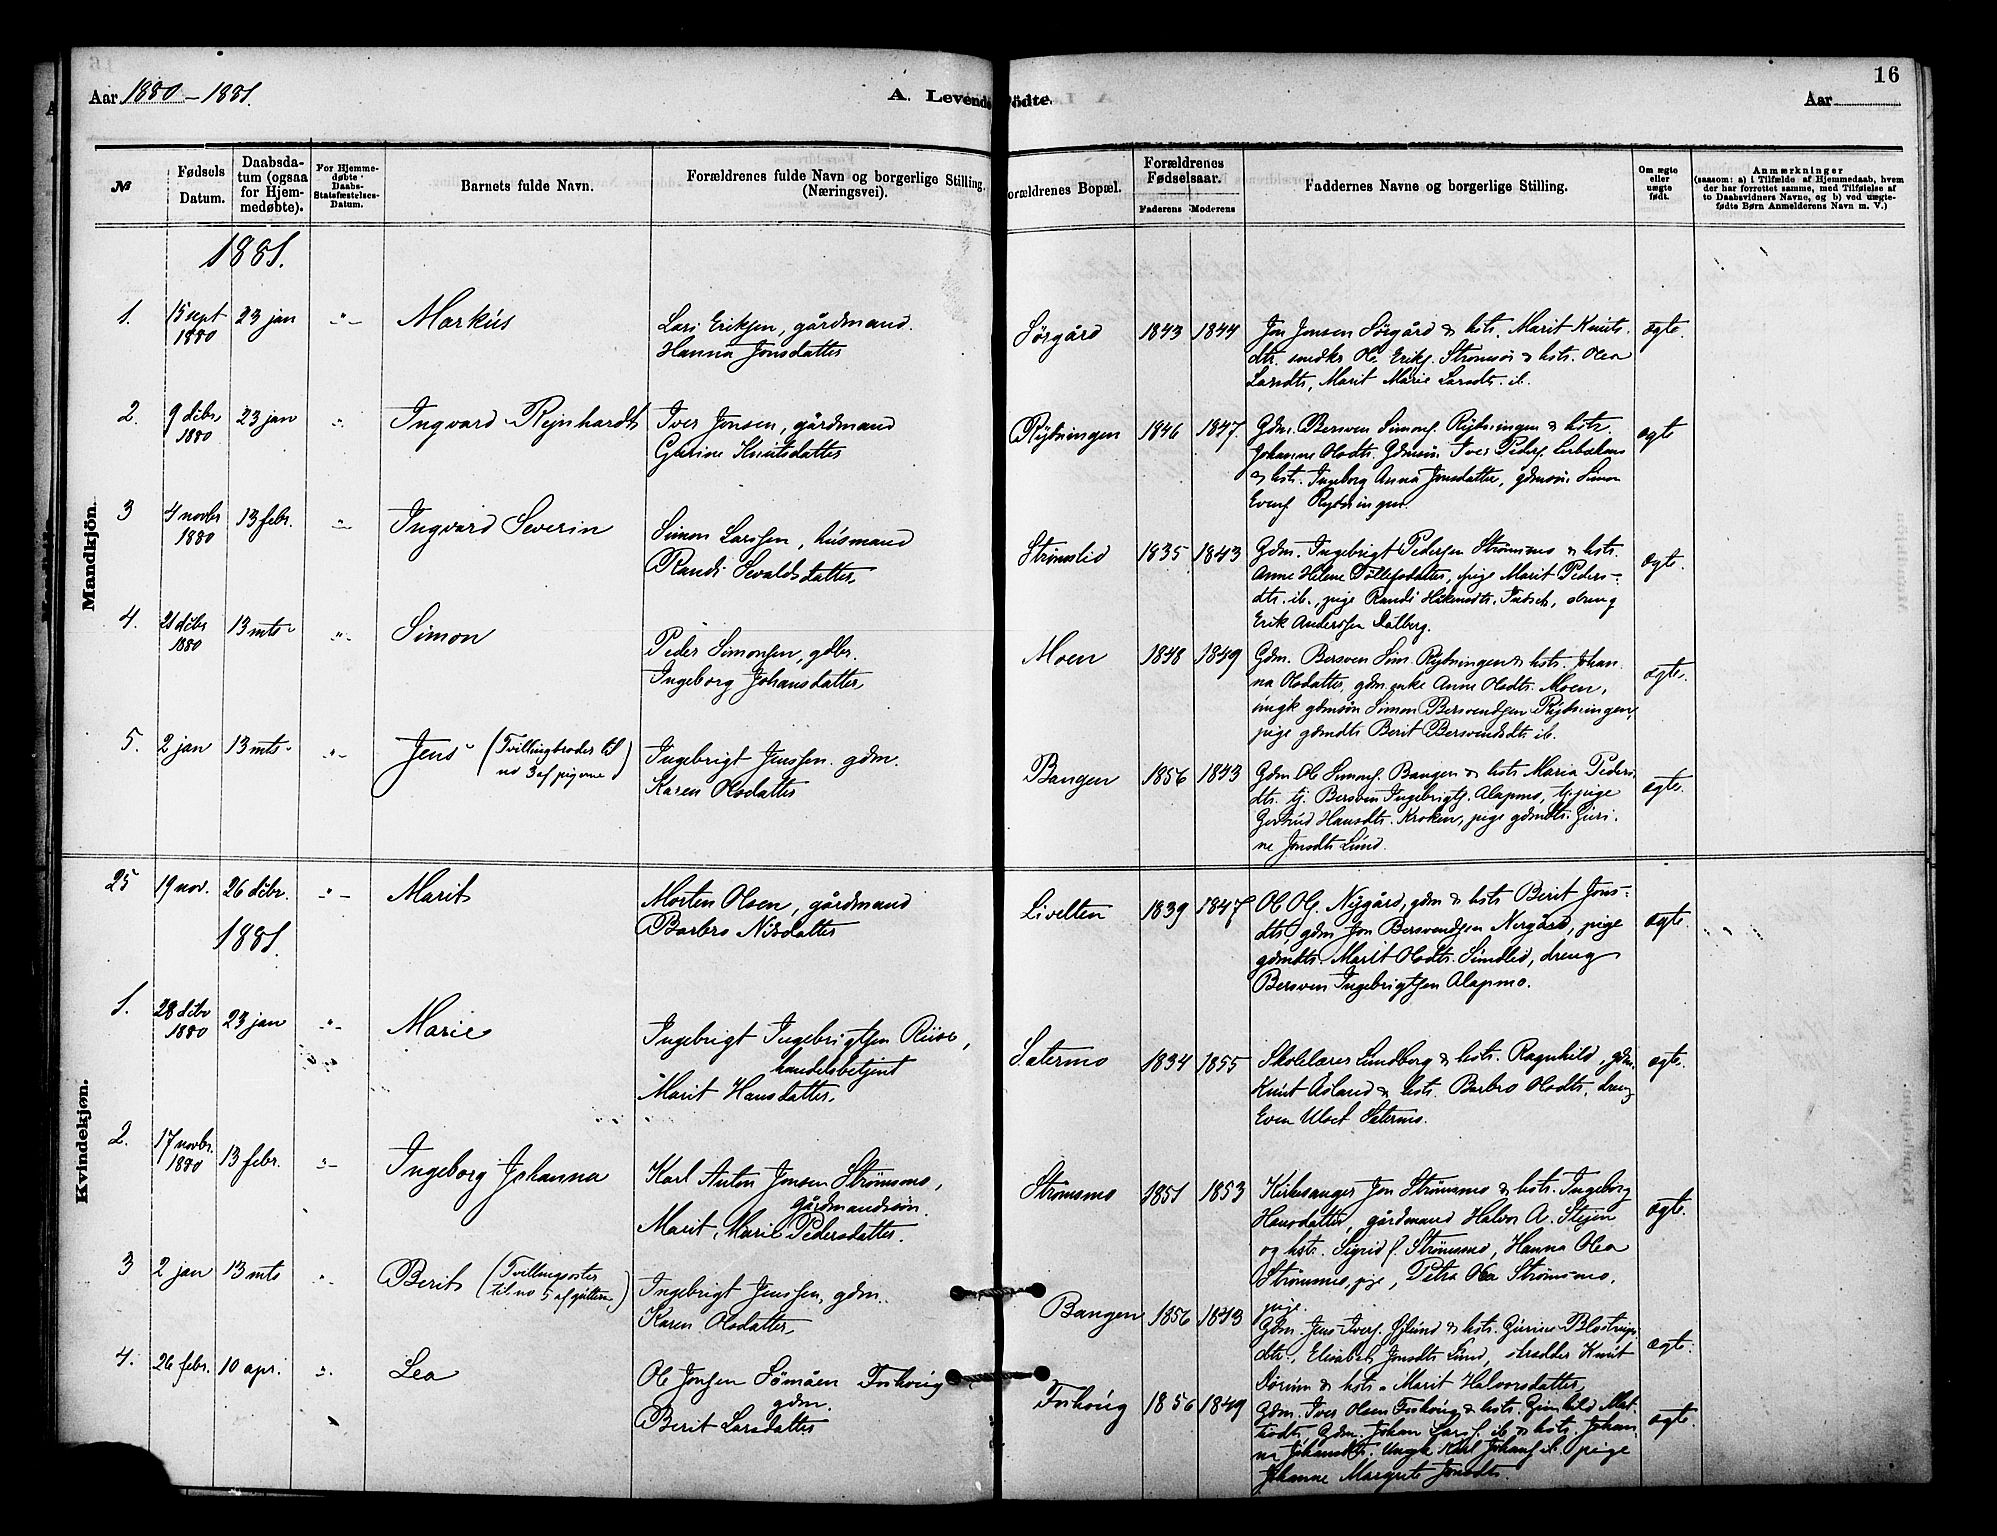 16
Aar 1880 – 1881.
A. Levende Födte.
Aar
№
Fødsels Datum.
Daabsdatum (ogsaa for Hjemmedøbte).
For Hjemmedøbte Daabs-Stadfæstelses-Datum.
Barnets fulde Navn.
Forældrenes fulde Navn og borgerlige Stilling. (Næringsvei).
Forældrenes Bopæl.
Forældrenes Fødselsaar.
Faderens Moderens
Faddernes Navne og borgerlige Stilling.
Om ægte eller uægte født.
Anmærkninger
(saasom: a) i Tilfælde af Hjemmedaab, hvem
der har forrettet samme, med Tilføielse af
to Daabsvidners Navne, og b) ved uægte-
fødte Børn Anmelderens Navn m. V.)
Mandkjön.
1881.
1. 15 sept 1880 23 jan -"- Markus
Lars Eriksen, gårdmand.
Hanna Jonsdatter
Sørgård 1843 1844
Jon Jonsen Sørgård & hst. Marit Knuts-
dtr. Ole Eriks. Strømsør & hst. Olea
Larsdtr, Marit Marie Larsdtr. ib.
ægte.
2. 9 debr 1880 23 jan -"- Ingvard Reinhardt
Iver Jonsen, gårdmand
Gurine Knutsdatter
Rydningen 1846 1847.
Gdm. Bersven Simons. Rydningen & hstr.
Johanne Olsdtr. Gdmsøn Iver Peders.
& hst. Ingeborg Anna Jonsdatter, gdmsøn Simon
Evens. Rydningen.
ægte
3 4 novbr 1880 13 febr. -"- Ingvard Severin
Simon Larssen, husmand
Randi Sevaldsdatter
Strømslid 1835 1843
Gdm. Ingebrigt Pedersen Strømsmo & hst.
Anne Helene Tollefsdatter, pige Marit Peders-
dtr. ib., pige Randi Håkensdtr. Indset, dreng
Erik Anderssen Dalberg.
ægte.
4. 21 debr 1880 13 mts -"- Simon
Peder Simonsen, gdbr.
Ingeborg Johansdatter
Moen 1848 1849
Gdm. Bersven Sim. Rydningen & hst. Johan-
na Olsdatter, gdm.enke Anne Olsdtr. Moen,
ungk gdmsøn Simon Bersvendsen Rydningen,
pige gdmdtr Berit Bersvendsdtr. ib.
ægte.
5. 2 jan 13 mts -"- Jens (Tvillingbroder til
no 3 af pigerne)
Ingebrigt Jenssen. gdm.
Karen Olsdatter
Bangen 1856 1843
Gdm. Ole Simons. Bangen & hst Maria Peders-
dtr. tj. Bersven Ingebrigts. Alapmo, tj. pige
Gertrud Hansdtr. Kroken, pige gdmdtr. Guri-
ne Jonsdtr Lund.
ægte.
Kvindekjøn.
25 19 nov. 26 debr. -"- Marit
Morten Olsen, gårdmand
Barbro Nilsdatter
Livelten 1839 1847
Ole Ols. Nygård, gdm & hst Berit Jons-
dtr, gdm Jon Bersvendsen Nergård, pige
gdmdtr. Marit Olsdtr. Sundlid, dreng
Bersven Ingebrigtsen Alapmo.
ægte.
1881.
1. 28 debr 1880 23 jan -"- Marie
Ingebrigt Ingebrigtsen Riise,
handelsbetjent
Marit Hansdatter,
Satermo 1834 1855
Skolelærer Lundberg & hst. Ragnhild, gdm.
Knut Åsland & hst. Barbro Olsdtr, dreng
Even Ulset Satermo.
ægte.
2. 17 novbr. 1880 13 febr. -"- Ingeborg Johanna
Karl Anton Jonsen Strømsmo,
gårdmandssøn.
Marit Marie Pedersdatter.
Strømsmo 1851 1853
Kirkesanger Jon Strømsmo & hst. Ingeborg
Hansdatter, gårdmand Halvor A. Stejen
og hst. Sigrid f. Strømsmo, Hanna Olea
Strømsmo, pige, Petra Olea Strømsmo,
pige.
ægte.
3 2 jan 13 mts -"- Berit (Tvillingsøster
til no 5 af gutterne)
Ingebrigt Jenssen, gdm.
Karen Olsdatter,
Bangen 1856 1843
Gdm. Jens Ivers. Øslund & hst. Gurine
dtr., Elisabeth Jonsdtr Lund, skrædder Knut
Sørum & hst. Marit Halvorsdatter,
ægte.
4. 26 febr. 10 apr. -"- Lea
Ole Jonsen Sömåen Foshoug
gdm.
Berit Larsdatter
Foshoug 1856 1849
Gdm. Iver Olsen Foshoug & hst. Gunhild
Gdm. Johan Lars. ib & hst. Johan-
na Johansdtr. Ungk Karl Johans. ib. pige
Johanne Margrete Jonsdtr.
ægte.